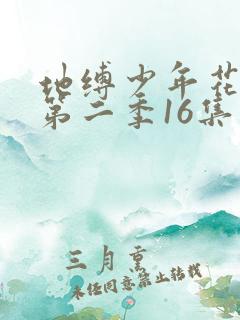 地缚少年花
第二季16集
三月熏
未经同意禁止转载